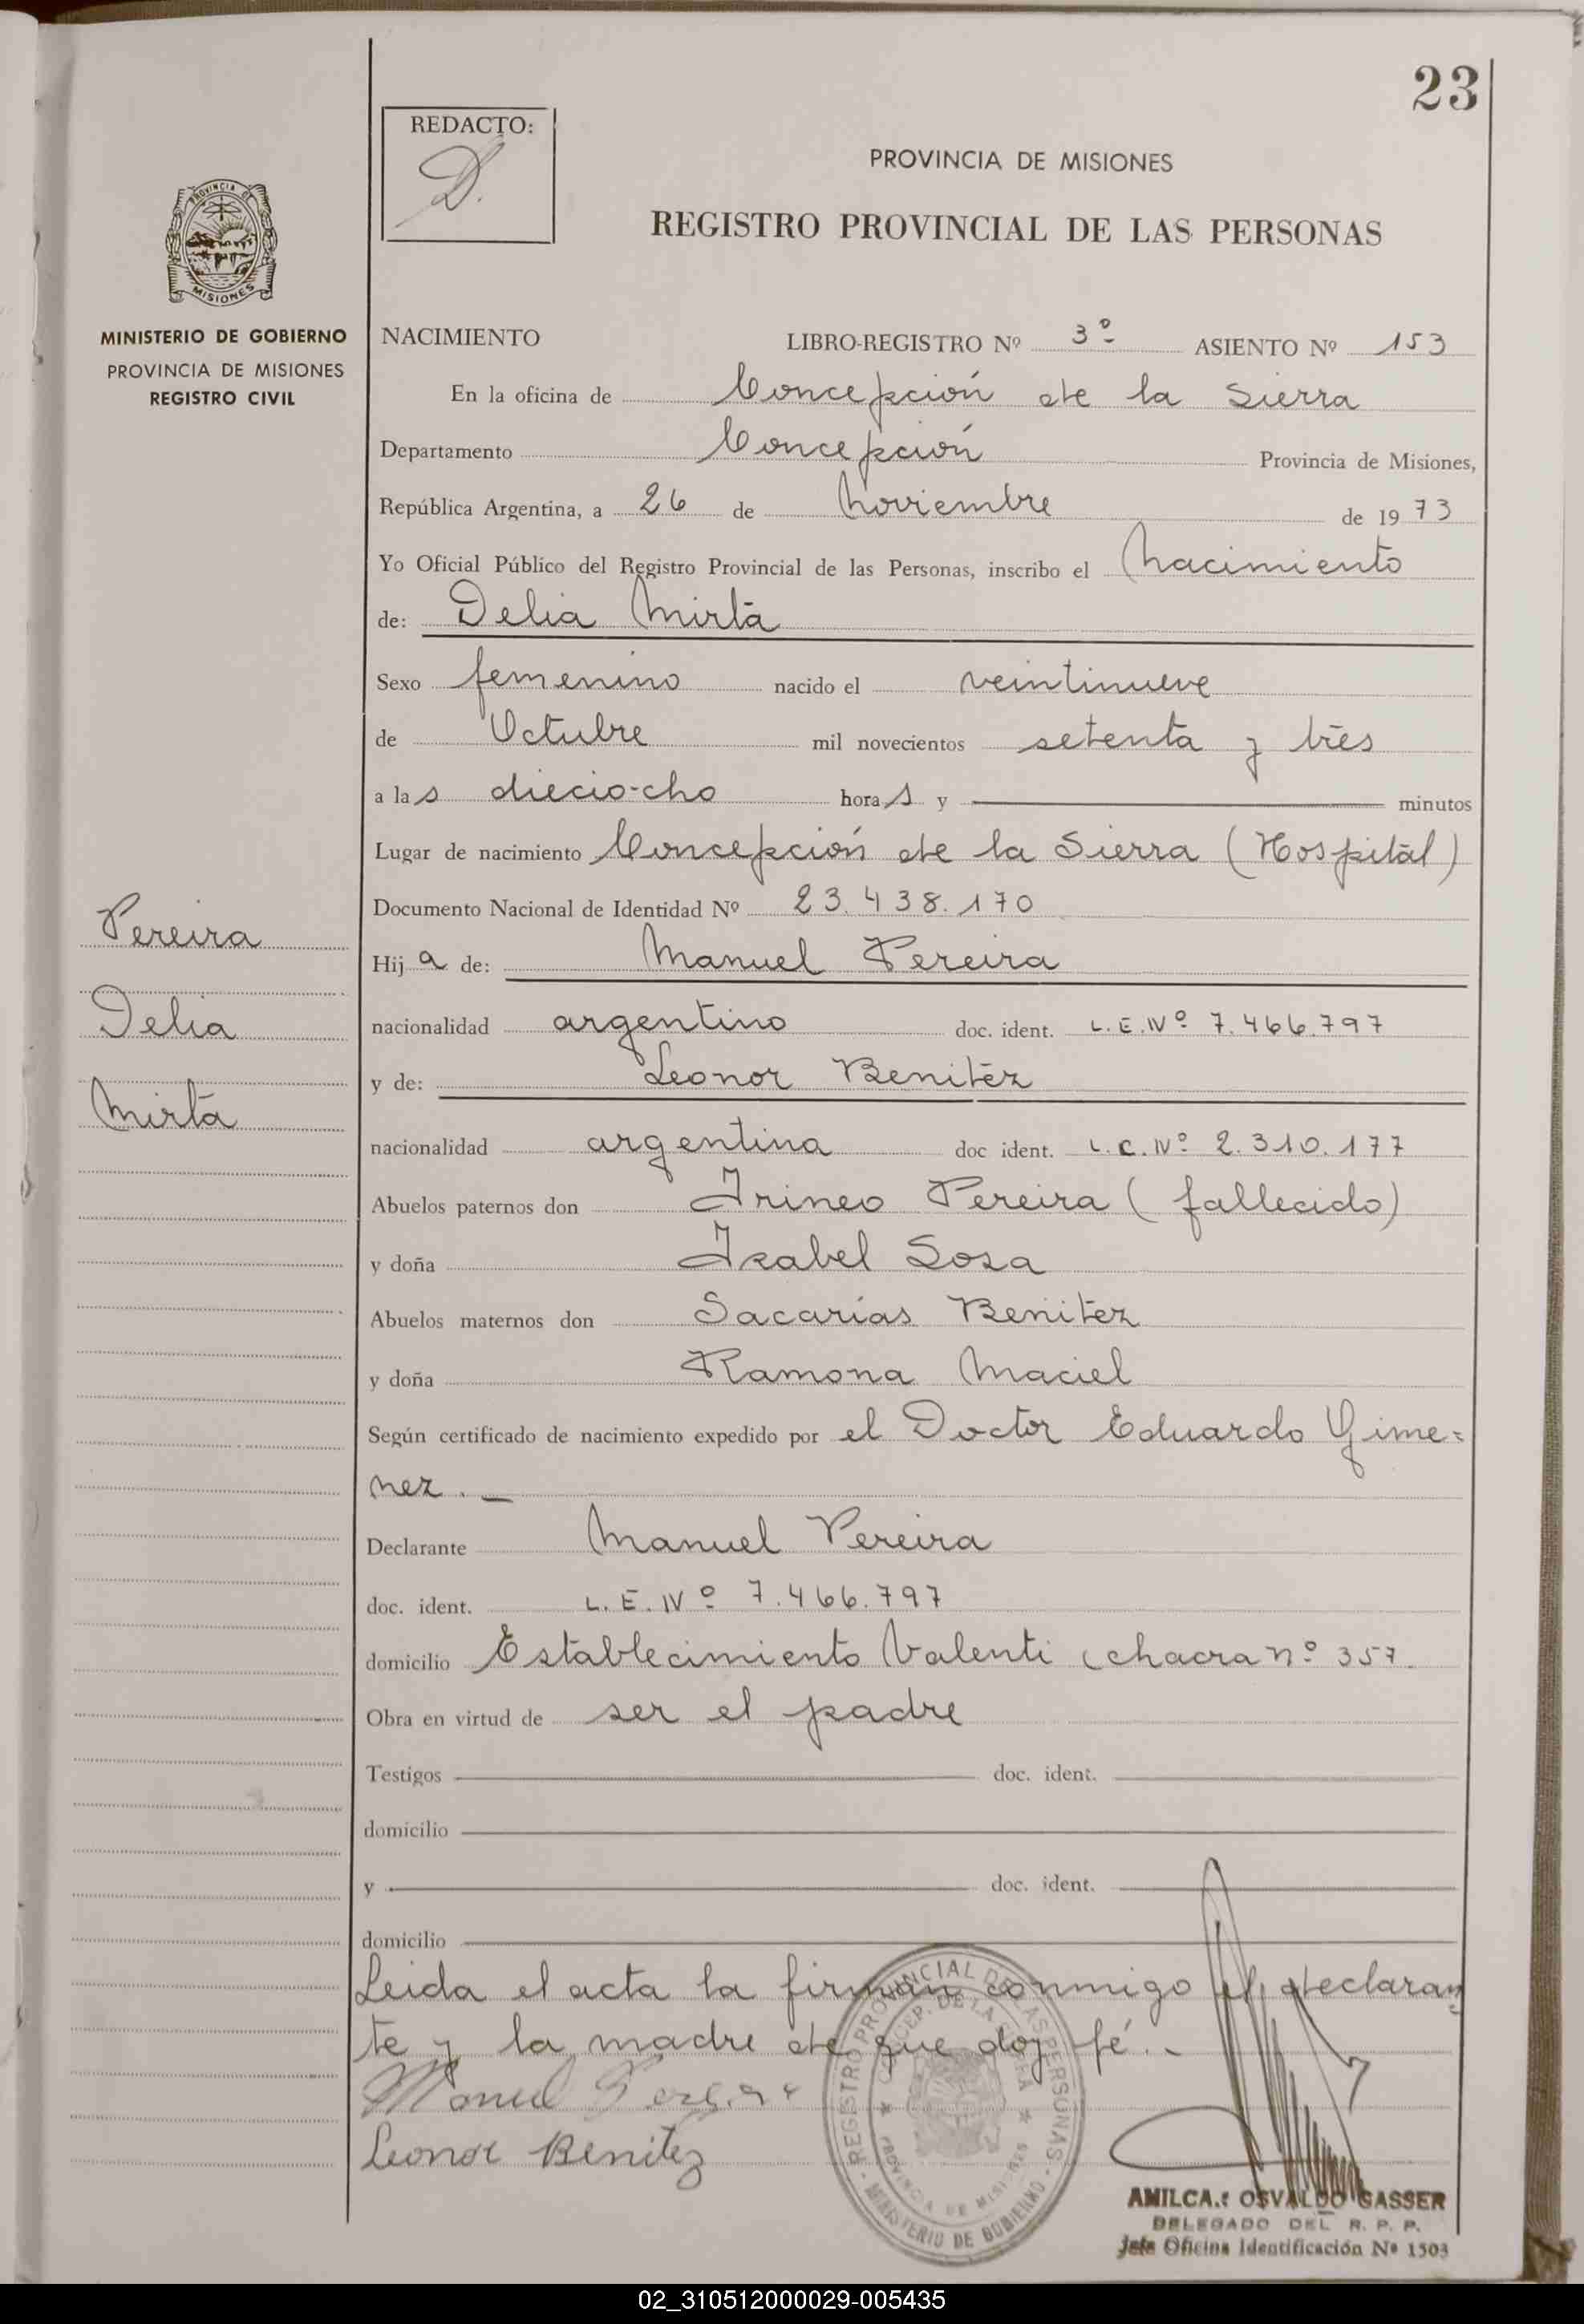 23
REDACTO:
D.
PROVINCIA DE MISIONES
REGISTRO PROVINCIAL DE LAS PERSONAS
PROVINCIA DE
MISIONES
MINISTERIO DE GOBIERNO
PROVINCIA DE MISIONES
REGISTRO CIVIL
Pereira
Delia
Mirta
NACIMIENTO LIBRO-REGISTRO Nº 3º ASIENTO Nº 153
En la oficina de Concepción de la Sierra
Departamento Concepción Provincia de Misiones,
República Argentina, a 26 de Noviembre de 1973
Yo Oficial Público del Registro Provincial de las Personas, inscribo el Nacimiento
de: Delia Mirta
Sexo femenino nacido el veintinueve
de Octubre mil novecientos setenta y tres
a las dieciocho horas y minutos
Lugar de nacimiento Concepción de la Sierra (Hospital)
Documento Nacional de Identidad Nº 23.438.170
Hija de: Manuel Pereira
nacionalidad argentino doc. ident. L.E.Nº 7.466.797
y de: Leonor Benitez
nacionalidad argentina doc ident. L.C.Nº 2.310.177
Abuelos paternos don Irineo Pereira (fallecido)
y doña Izabel Sosa
Abuelos maternos don Sacarías Benitez
y doña Ramona Maciel
Según certificado de nacimiento expedido por el Doctor Eduardo Gime=
nez.—
Declarante Manuel Pereira
doc. ident. L.E.Nº 7.466.797
domicilio Establecimiento Valenti chacra nº 357.
Obra en virtud de ser el padre
Testigos doc. ident.
domicilio
y doc. ident.
domicilio
Leida el acta la firman conmigo el declaran
te y la madre de que doy fé.-
Manuel Pereira
Leonor Benitez
REGISTRO PROVINCIAL DE LAS PERSONAS
CONCEP. DE LA SIERRA
PROVINCIA DE MISIONES
MINISTERIO DE GOBIERNO
AMILCAR OSVALDO GASSER
DELEGADO DEL R. P. P.
Jefe Oficina Identificación Nº 1503
02_310512000029-005435